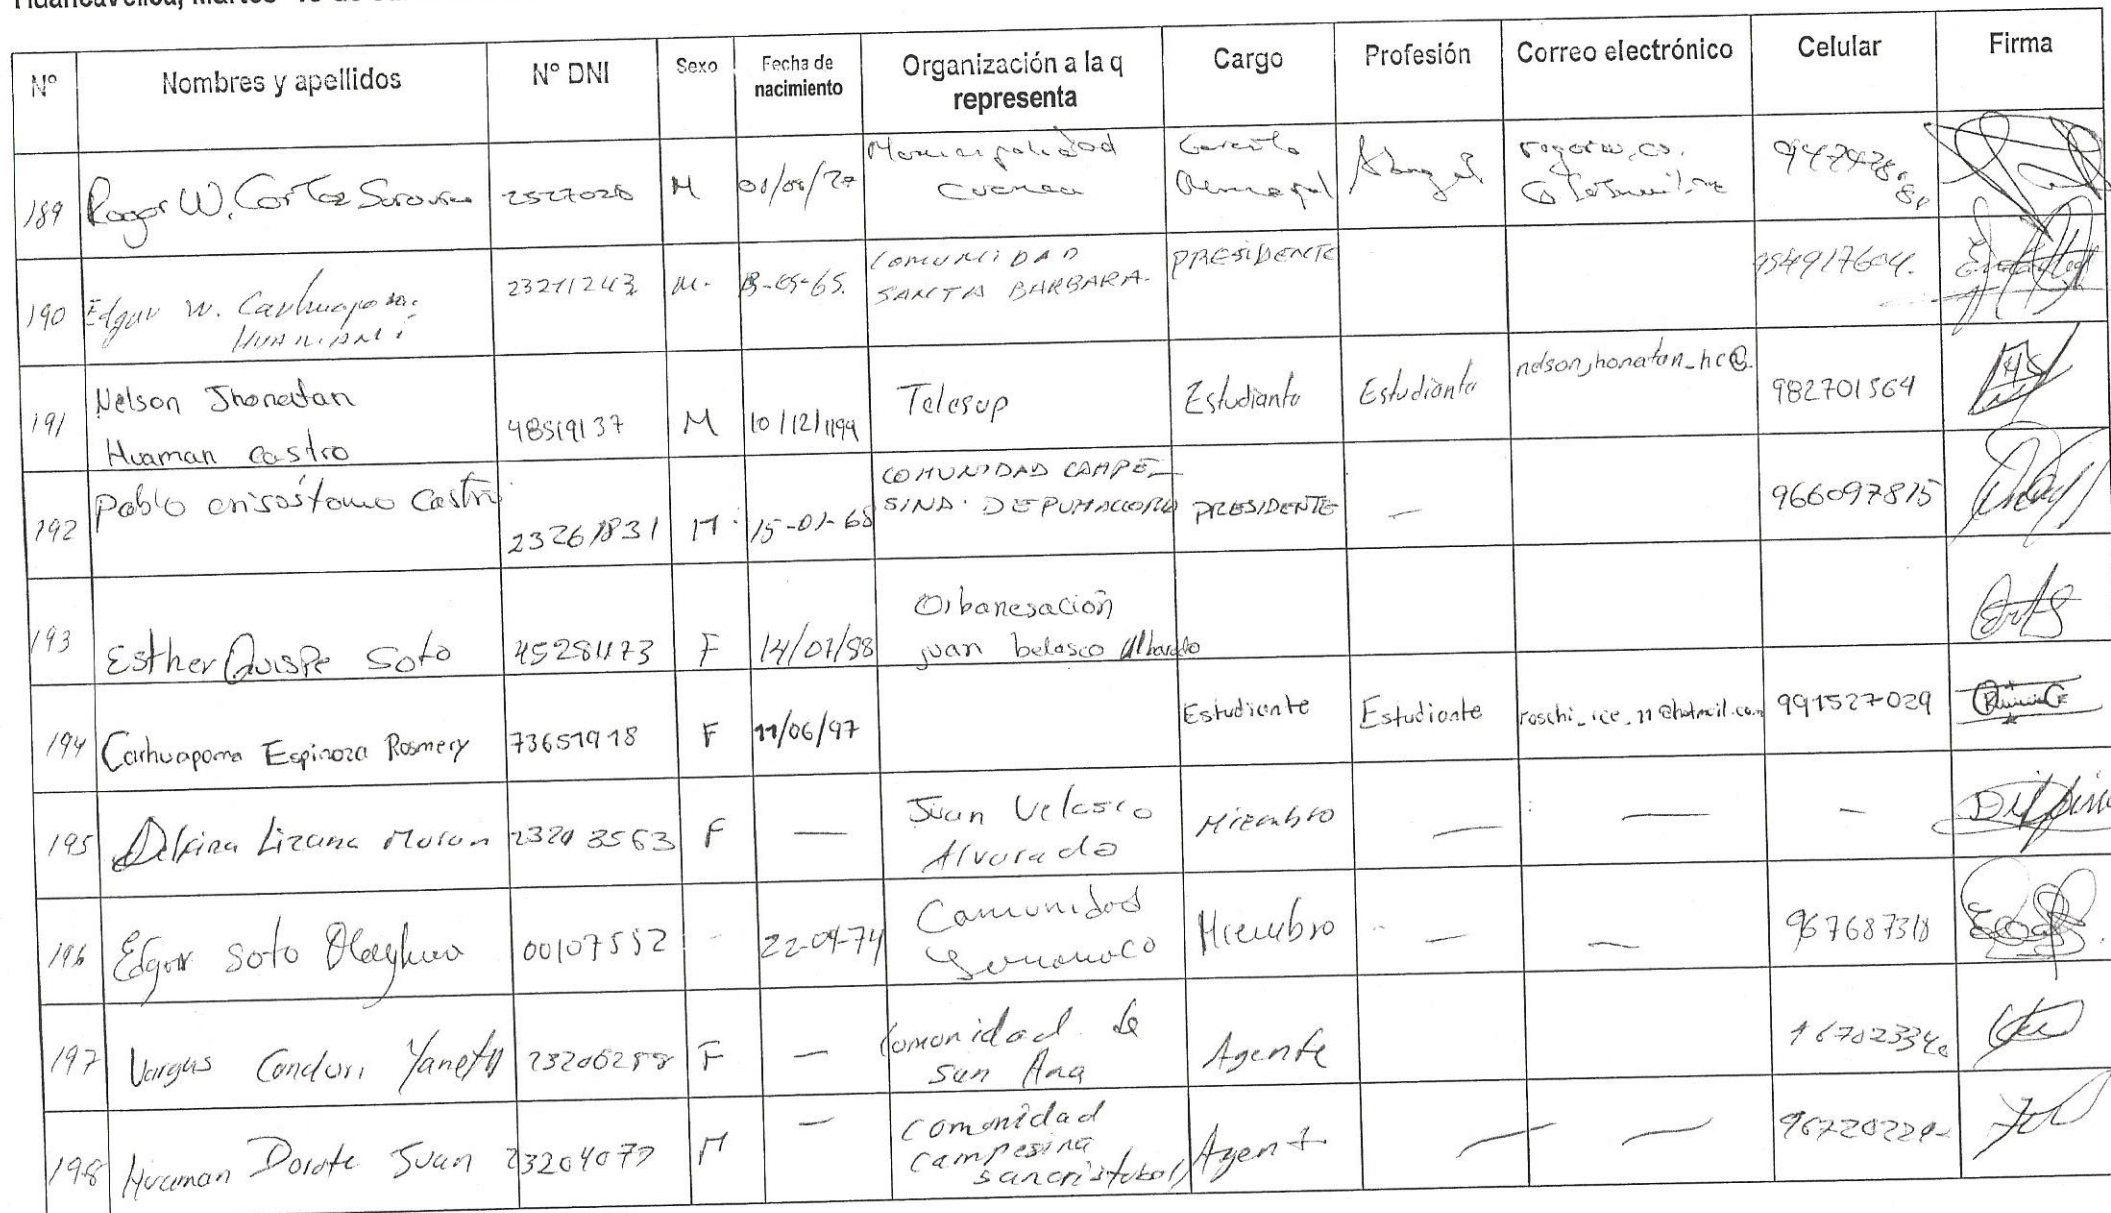 Huancavelica, Martes
Nº Nombres y apellidos Nº DNI Sexo Fecha de nacimiento Organización a la q representa Cargo Profesión Correo electrónico Celular Firma
189 Roger W. Cortez 2527028 M Municipalidad Cuenca
190 Edgar W. Carhuapoma 23271243 M. COMUNIDAD SANTA BARBARA. PRESIDENTE 954917604.
191 Nelson Jhonatan Huaman Castro 48519137 M 10/12/1194 Telesup Estudiante Estudiante nelson_jhonatan_hc@. 982701564
192 Pablo crisostomo Castro 23261831 M 15-01-68 COMUNIDAD CAMPESINA. DE PUMACCORIA PRESIDENTE — 966097815
193 Esther Quispe Soto 45281173 F 14/07/88 Orbanesación juan belasco Albarado
194 Carhuapoma Espinoza Rosmery 73651918 F 11/06/97 Estudiante Estudiante roschi_ice_11@hotmail.com 991527029
195 Delfina Lizana Moran 23203563 F — Juan Velasco Alvarado Miembro — — — Delfina
196 Edgar Soto 00107552 - 22-04-74 Comunidad Miembro — — 967687318 Edgar
197 Vargas Condori Yaneth 23206288 F — Comonidad de San Ana Agente
198 Huaman Dorote Juan 23204077 M — comonidad campesina sancristobal Agent — —